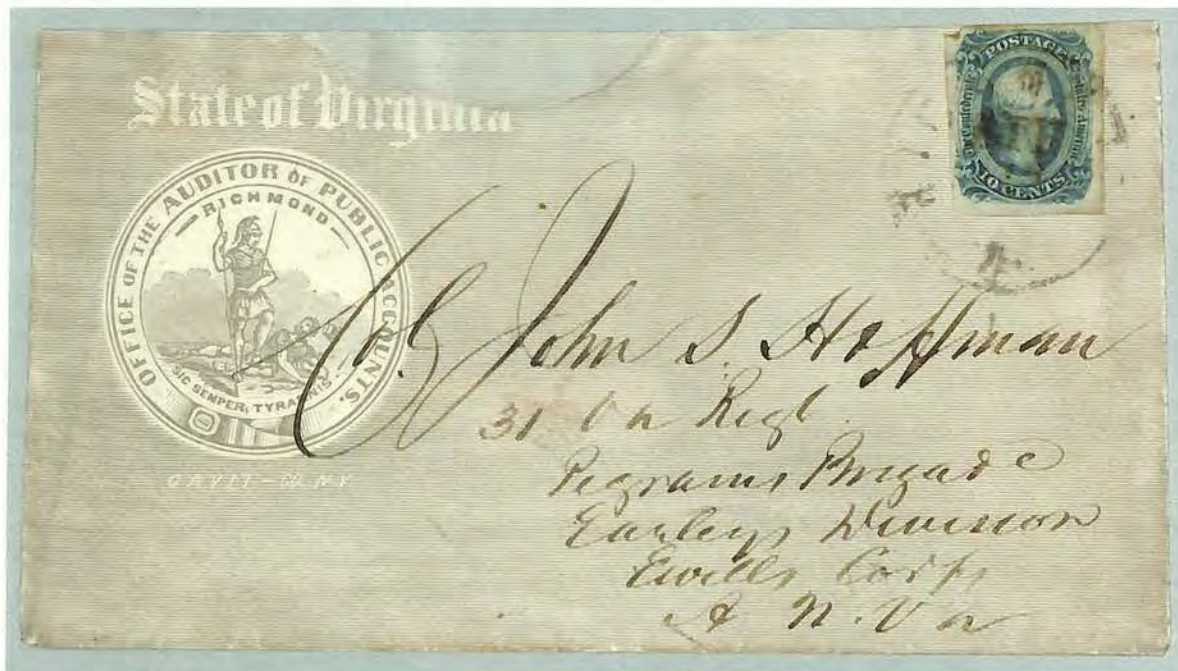 State of Virginia
OFFICE OF THE AUDITOR OF PUBLIC ACCOUNTS.
RICHMOND
SIC SEMPER, TYRANNIS
GAVIT & CO NY
POSTAGE
The Confederate States of America
10 CENTS
Col. John S. Hoffman
31 Va Regt
Pegrams Brigade
Earleys Division
Ewells Corps
A N. Va